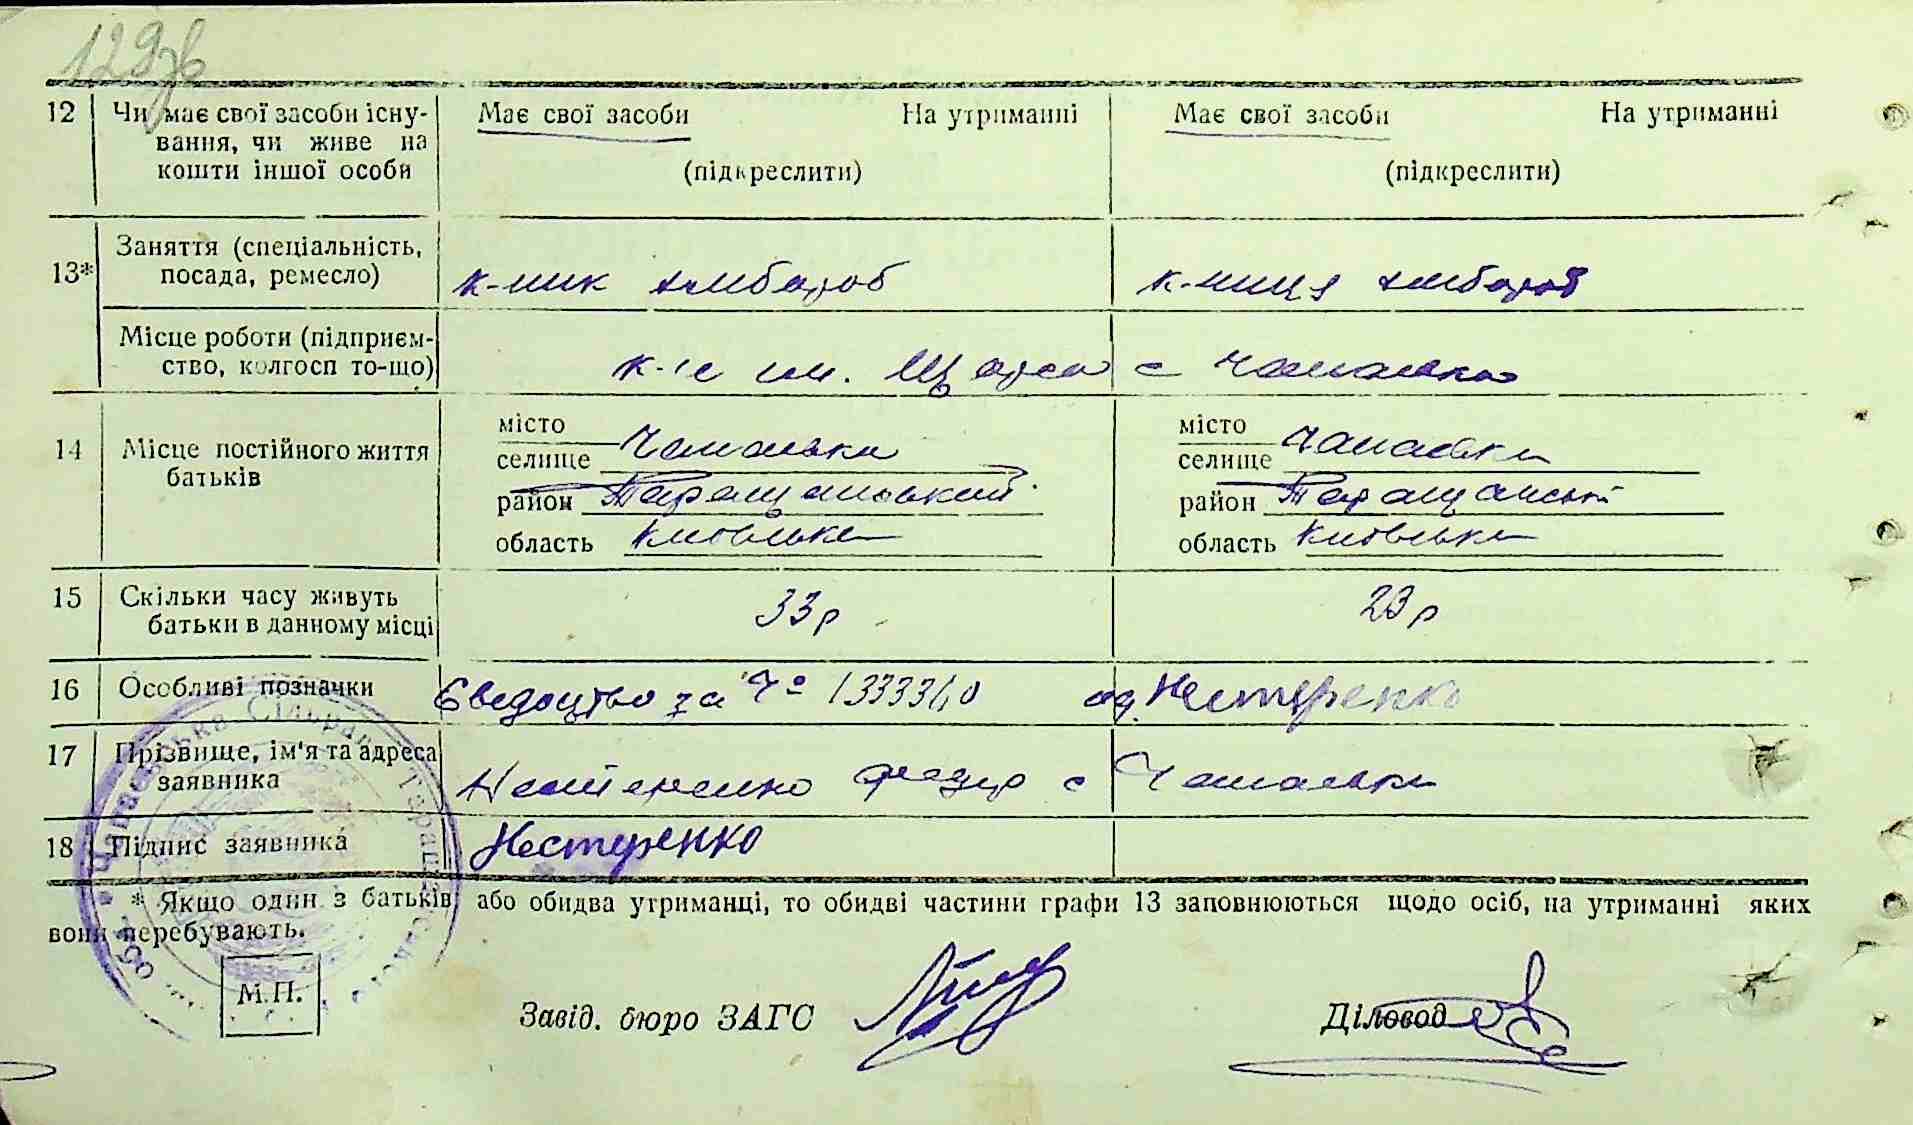 129зв
12 Чи має свої засоби існу- Має свої засоби На утриманні Має свої засоби На утриманні
вання, чи живе на
кошти іншої особи (підкреслити) (підкреслити)
Заняття (спеціальність,
13* посада, ремесло) к-ник к-ниця
Місце роботи (підприєм-
ство, колгосп то-що) к-п им. Щорса с Чапаевка
місто місто
14 Місце постійного життя селище Чапаевка селище Чапаевка
батьків район Таращанський район Таращанський
область Киевська область Киевська
15 Скільки часу живуть 33р 23р
батьки в данному місці
16 Особливі позначки Сведоцтво за Ч° 1333340 од. Нестеренко
17 Прізвище, ім'я та адреса
заявника Нестеренко с Чапаевка
18 Підпис заявника Нестеренко
* Якщо один з батьків або обидва утриманці, то обидві частини графи 13 заповнюються щодо осіб, на утриманні яких
вони перебувають.
М.П. Завід. бюро ЗАГС Діловод